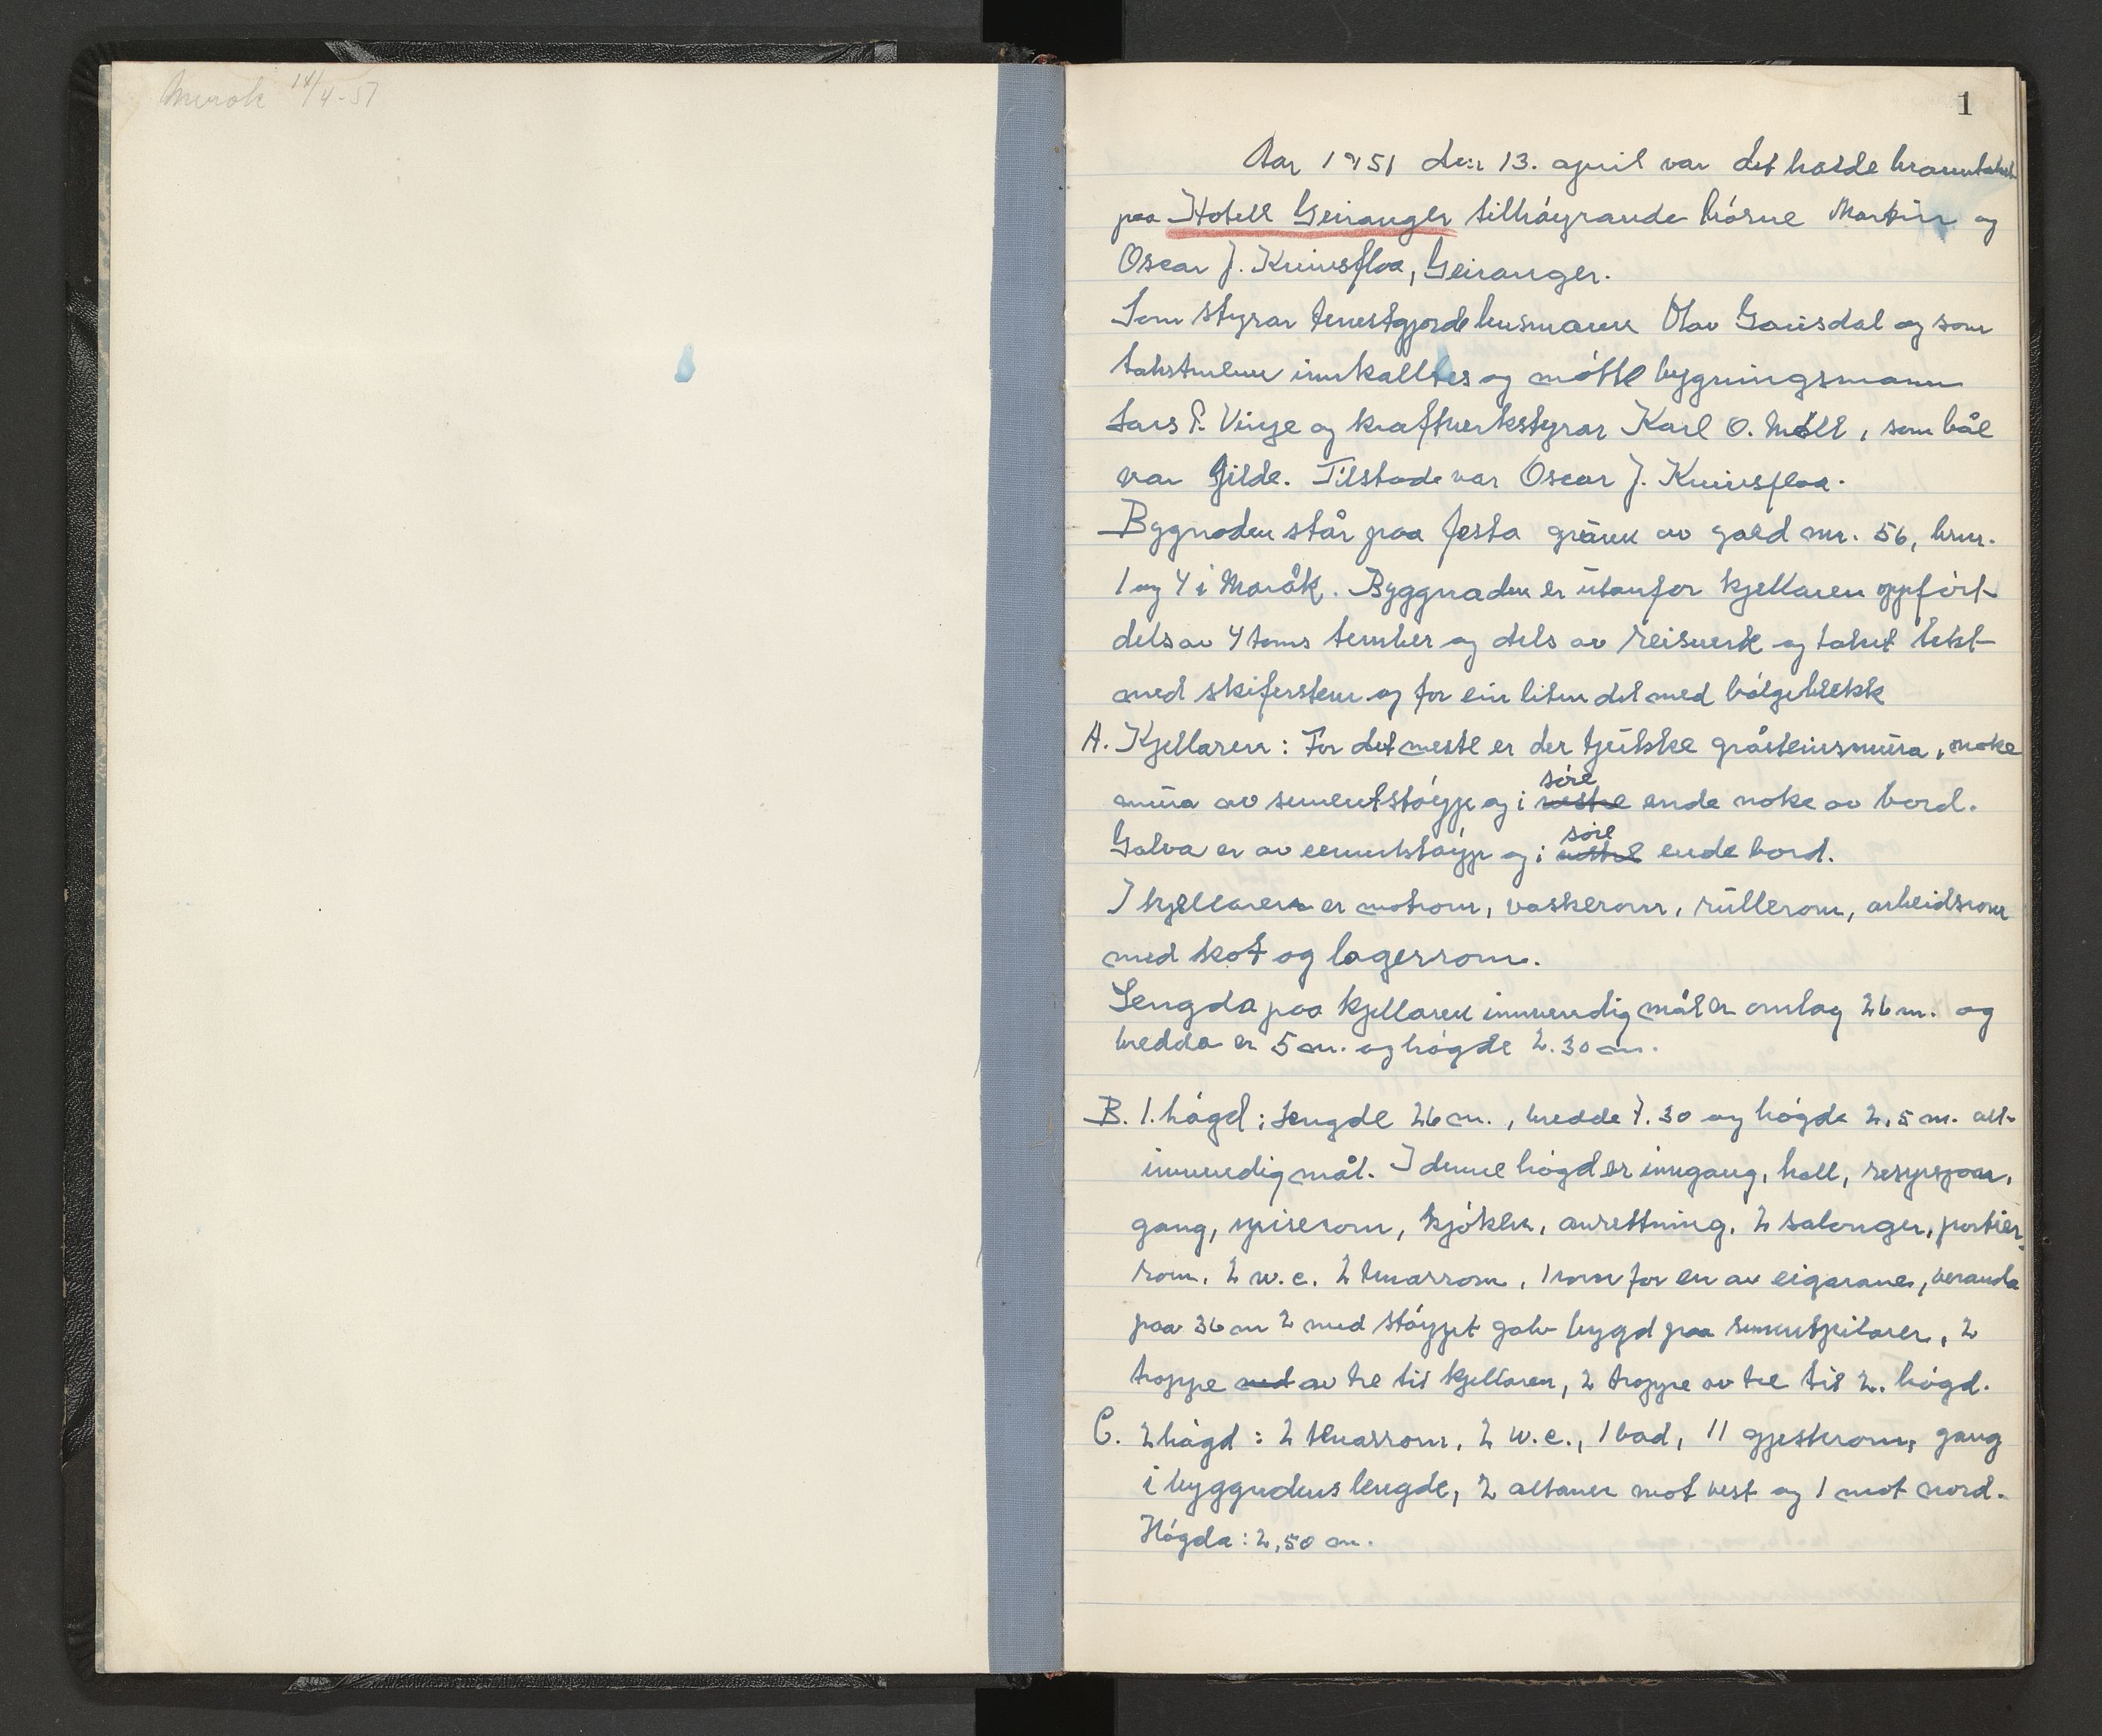 Merok 14/4-51
1
Aar 1951 den 13. april var det halde branntakst
paa Hotell Geiranger tilhøyrande brørne Martin og
Oscar J. Knivsflaa, Geiranger.
Som styrar tenestgjorde lensmann Olav Gausdal og som
takstmenn innkalltes og møtte bygningsmann
Lars P. Vinje og kraftverkstyrar Karl O. Møll, som båe
var gilde. Tilstade var Oscar J. Knivsflaa.
Bygnaden står paa festa grunn av gard nr. 56, brnr.
1 og 4 i Maråk. Byggnaden er utanfor kjellaren oppført
dels av 4 toms tember og dels av reisverk og taket tekt
med skiferstein og for ein liten del med bølgeblekk
A. Kjellaren: For det meste er der tjukke gråsteinsmura, noke
mura av sementstøyp og i søre vestre ende noke av bord.
Golva er av cementstøyp og i søre vestre ende bord.
I kjellaren er matrom, vaskerom, rullerom, arbeidsrom
med kot og lagerrom.
Lengda paa kjellaren innvendig mål er omlag 26 m. og
bredda er 5 m. og høgde 2.30 m.
B. 1. høgd: Lengde 26 m., bredde 7.30 og høgde 2,5 m. alt
innvendig mål. I denne høgd er inngang, hall, resepsjon,
gang, spiserom, kjøken, anrettning, 2 salonger, portier-
rom, 2 w.c. 2 tenarrom, 1 rom for en av eigarane, veranda
paa 36 m2 med støypt golv bygd paa sementpilarer, 2
trappe ned av tre til kjellaren, 2 trappe av tre til 2. høgd.
C. 2 høgd: 2 tenarrom, 2 w.c., 1 bad, 11 gjesterom, gang
i byggnadens lengde, 2 altaner mot vest og 1 mot nord.
Høgda: 2,50 m.